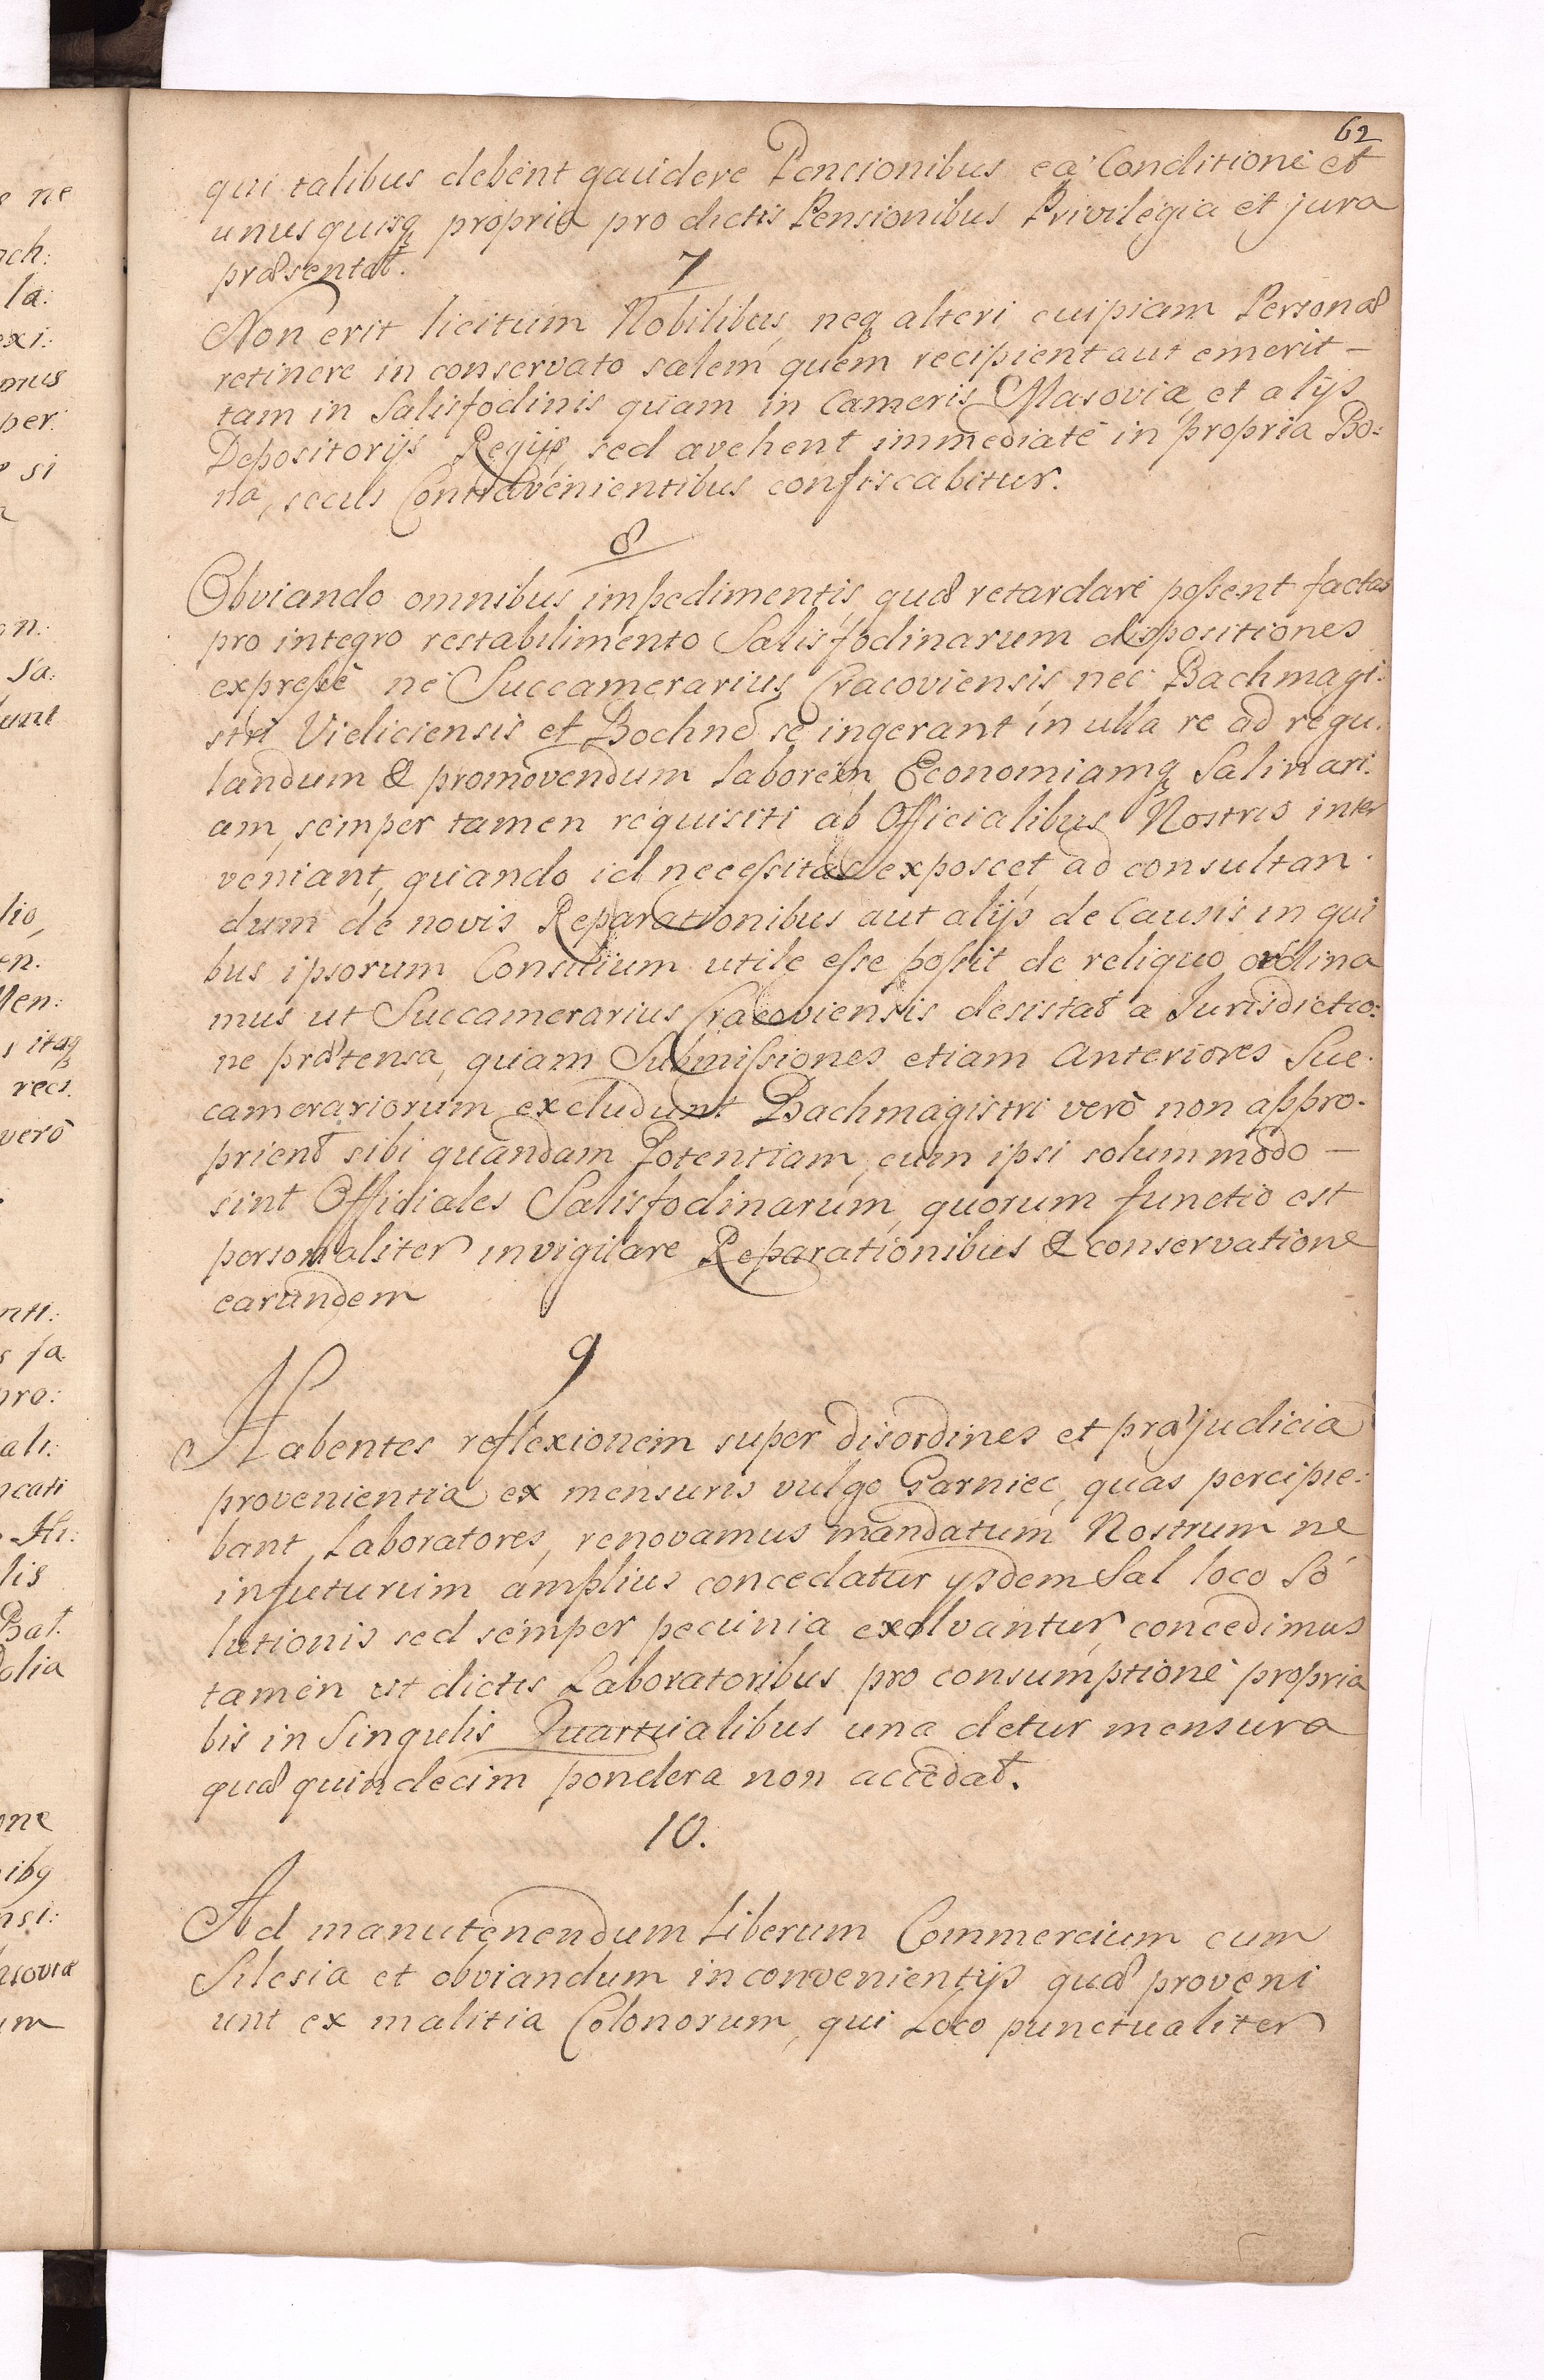 62
qui talibus debent gaudere Pencionibus ea Conditione et
unusquisq propria pro dictis Pensionibus Privilegia et jura
præsentat.
7
Non erit licitum Nobilibus, neq alteri cuipiam Personæ
retinere in conservato salem, quem recipient aut emerit –
tam in Salisfodinis quam in Cameris Masoviæ, et alijs
Depositorijs Regijs, sed avehent immediatè in propria Bo:
na, secus Contravenientibus confiscabitur.
8
Obviando omnibus impedimentis, quæ retardare possent factas
pro integro restabilimento Salisfodinarum dispositiones
expressè ne Succamerarius Cracoviensis nec Bachmagi:
stri Vieliciensis et Bochnæ se ingerant in ulla re ad regu:
landum & promovendum laborem Economiamq Salinari:
am, semper tamen requisiti ab Officialibus Nostris inter
veniant, quando id necessitas exposcet, ad consultan:
dum de novis Reparationibus aut alijs de Causis in qui
bus ipsorum Consilium utile esse possit de reliquo ordina
mus ut Succamerarius Cracoviensis desistat a Jurisdictio:
ne prætensa, quam Submissiones etiam Anteriores Suc:
camerariorum excludunt Bachmagistri verò non appro:
prient sibi quandam Potentiam, cum ipsi solummodo –
sint Officiales Salisfodinarum, quorum functio est
personaliter invigilare Reparationibus & conservatione
earundem
9
Habentes reflexionem super disordines et præjudicia
provenientia ex mensuris vulgo Garniec, quas percipie:
bant Laboratores, renovamus mandatum Nostrum ne
infuturum amplius concedatur ysdem Sal loco So
lutionis sed semper pecunia exolvantur, concedimus
tamen ut dictis Laboratoribus pro consumptione propria
bis in Singulis Quartualibus una detur mensura
quæ quindecim pondera non accedat.
10.
Ad manutenendum Liberum Commercium cum
Silesia et obviandum inconvenientijs quæ proveni
unt ex malitia Colonorum, qui Loco punctualiter